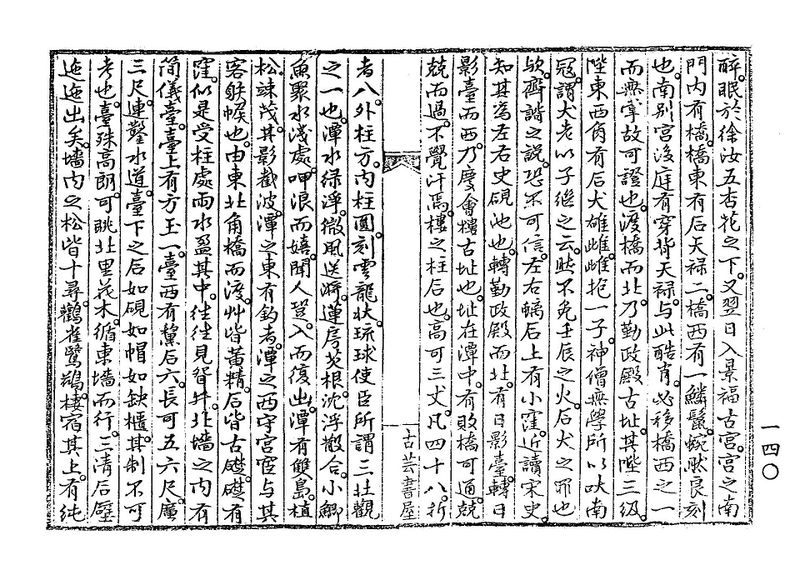 醉眠於徐汝五杏花之下又翌日入景福古宮宮之南
門內有橋橋東有石天祿二橋西有一鱗鬣蜿然良刻
也南別宮後庭有穿背天祿與此酷肖必移橋西之一
而無掌故可證也渡橋而北乃勤政殿古址其陛三級
陛東西角有石犬雄雌雌抱一子神僧無學所以吠南
寇謂犬老以子繼之云然不免壬辰之火石犬之罪也
欤齊諧之說恐不可信左右螭石上有小窪近讀宋史
知其爲左右史硯池也轉勤政殿而北有日影臺轉日
影臺而西乃慶會樓古址也址在潭中有敗橋可通兢
兢而過不覺汗焉樓之柱石也高可三丈凡四十八折
古芸書屋
者八外柱方內柱圓刻雲龍狀琉球使臣所謂三壯觀
之一也潭水綠淨微風送漪蓮房芡根沈浮散合小鯽
魚聚水淺處呷浪而嬉聞人登入而復出潭有雙島植
松竦茂其影截波潭之東有釣者潭之西守宮宦與其
客躲帿也由東北角橋而渡艸皆黃精石皆古礎礎有
窪似是受柱處雨水盈其中往往見眢井北墻之內有
簡儀臺臺上有方玉一臺西有黳石六長可五六尺廣
三尺連鑿水道臺下之石如硯如帽如缺櫃其制不可
考也臺殊高朗可眺北里花木循東墻而行三清石壁
迤迤出矣墻內之松皆十尋鸛雀鷺鶿棲宿其上有純
一四〇